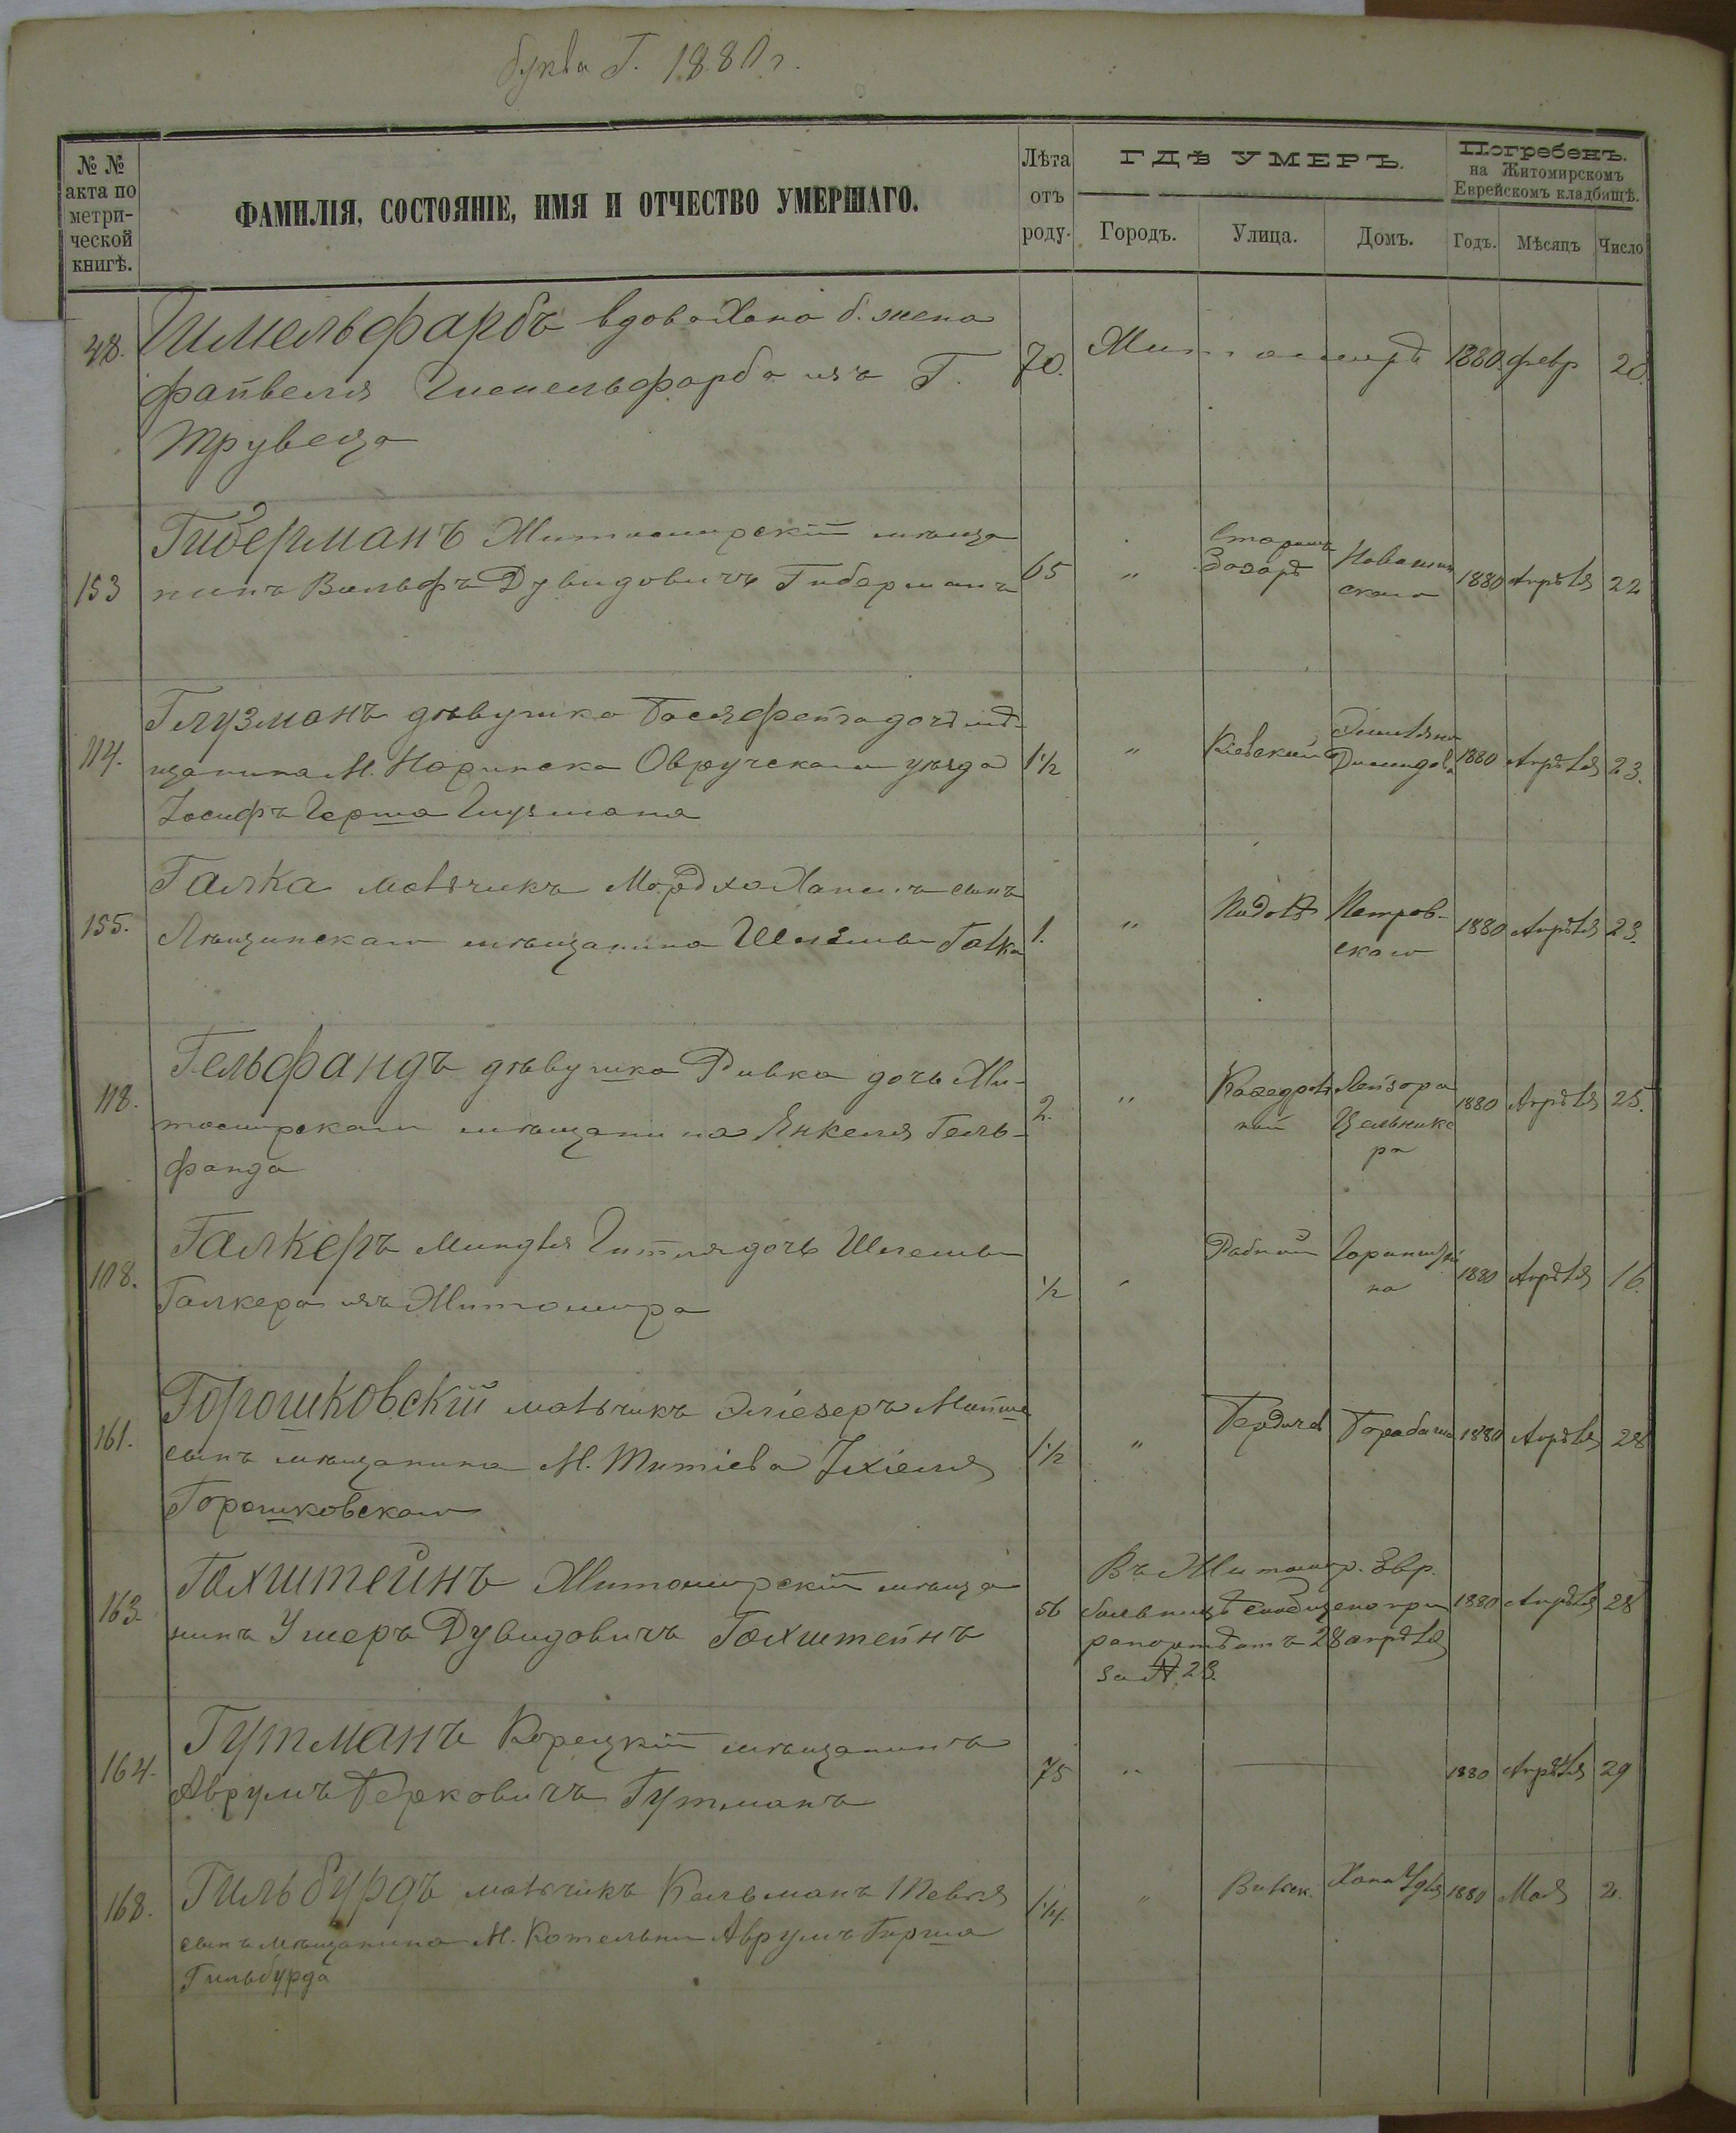 буква Г. 1880 г.
№ №
акта по
метри-
ческой
книгѣ.
ФАМИЛІЯ, СОСТОЯНІЕ, ИМЯ И ОТЧЕСТВО УМЕРШАГО.
Лѣта
отъ
роду.
ГДѢ УМЕРЪ.
Городъ.
Улица.
Домъ.
Погребенъ.
на Житомирскомъ
Еврейскомъ кладбищѣ.
Годъ.
Мѣсяцъ
Число
48. Гимельфарбъ вдова Хана б. жена
файвеля Гимельфарба изъ Г.
Трувеца
70. Житомиръ 1880 февр 20.
Гиберманъ Житомирскій мѣща
153 нинъ Вольфъ Дувидовичъ Гиберманъ
65 " Базаръ скаго 1880 Апрѣля 22
Глузманъ дѣвушка Бася Фейга дочь мѣ-
114. щанина М. Норинска Овручскаго уѣзда
Іосифъ Герша Глузмана
1½ " Кіевской Демидова 1880 Апрѣля 23.
Галка мальчикъ Мордхо сынъ
155. мѣщанина Шлемы Галка
1. " Подолъ Петров-
скаго 1880 Апрѣля 23.
Гельфандъ дѣвушка Ривка дочь Жи-
118. томирскаго мѣщанина Янкеля Гель-
фанда
2. " Каѳедраль
ной Лейзора
1880 Апрѣля 25.
Галкеръ Миндля Гитля дочь Шлемы
108. Галкера изъ Житомира
½ " 1880 Апрѣля 16.
Горошковскій мальчикъ Эліезеръ
161. сынъ мѣщанина М. Тетіева Іхіеля
Горошковскаго
1½ " Бердичев 1880 Апрѣля 28
Галхштейнъ Житомирскій мѣща
163. нинъ Ушеръ Дувидовичъ Галхштейнъ
56 Въ Житомир. Евр.
больницѣ сообщено при
рапортѣ отъ 28 апрѣля
за № 23.
1880 Апрѣля 28
Гутманъ Корецкій мѣщанинъ
164. Аврумъ Берковичъ Гутманъ
75 " 1880 Апрѣля 29
168. Гильбурдъ мальчикъ Кальманъ Тевля
сынъ мѣщанина М. Котельни Аврумъ Герша
Гильбурда
1¼ " 1880 Мая 2.